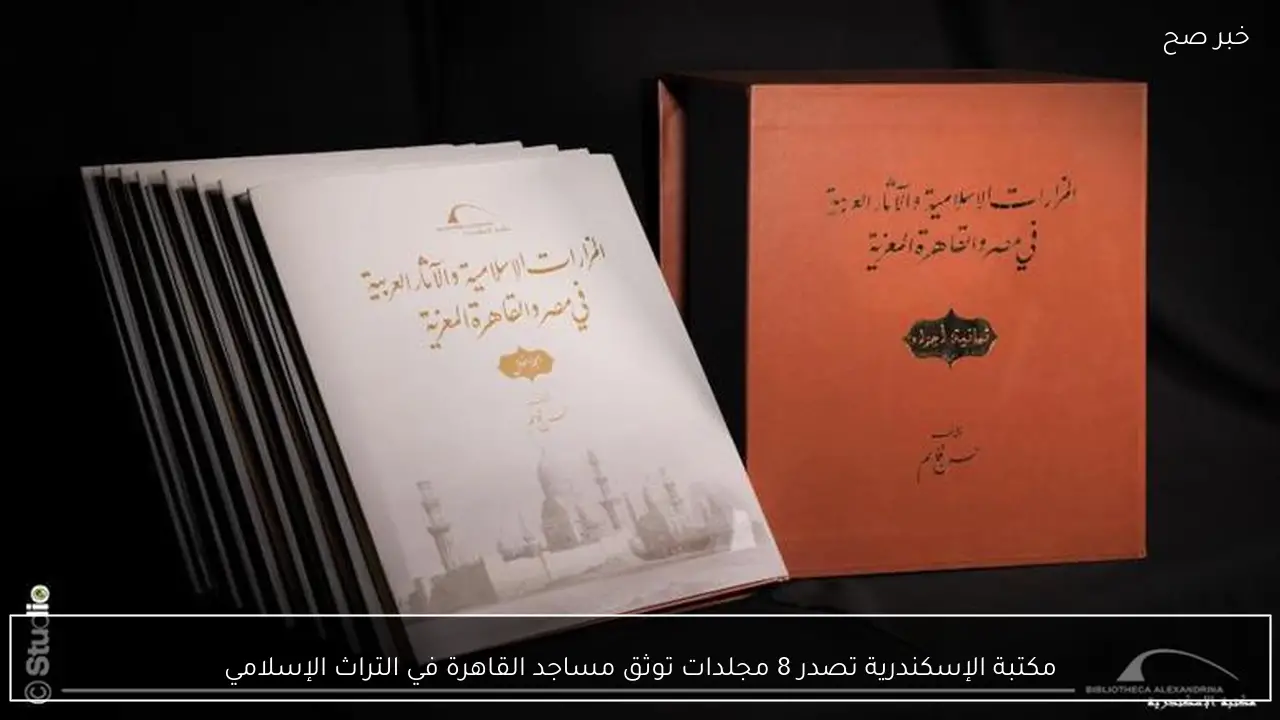 خبر صح
المزارات الإسلامية والآثار العربية
في مصر والقاهرة المعزية
ثمانية أجزاء
حسن قاسم
المزارات الإسلامية والآثار العربية
في مصر والقاهرة المعزية
حسن قاسم
© Studio
مكتبة الإسكندرية تصدر 8 مجلدات توثق مساجد القاهرة في التراث الإسلامي
BIBLIOTHECA ALEXANDRINA
مكتبة الإسكندرية